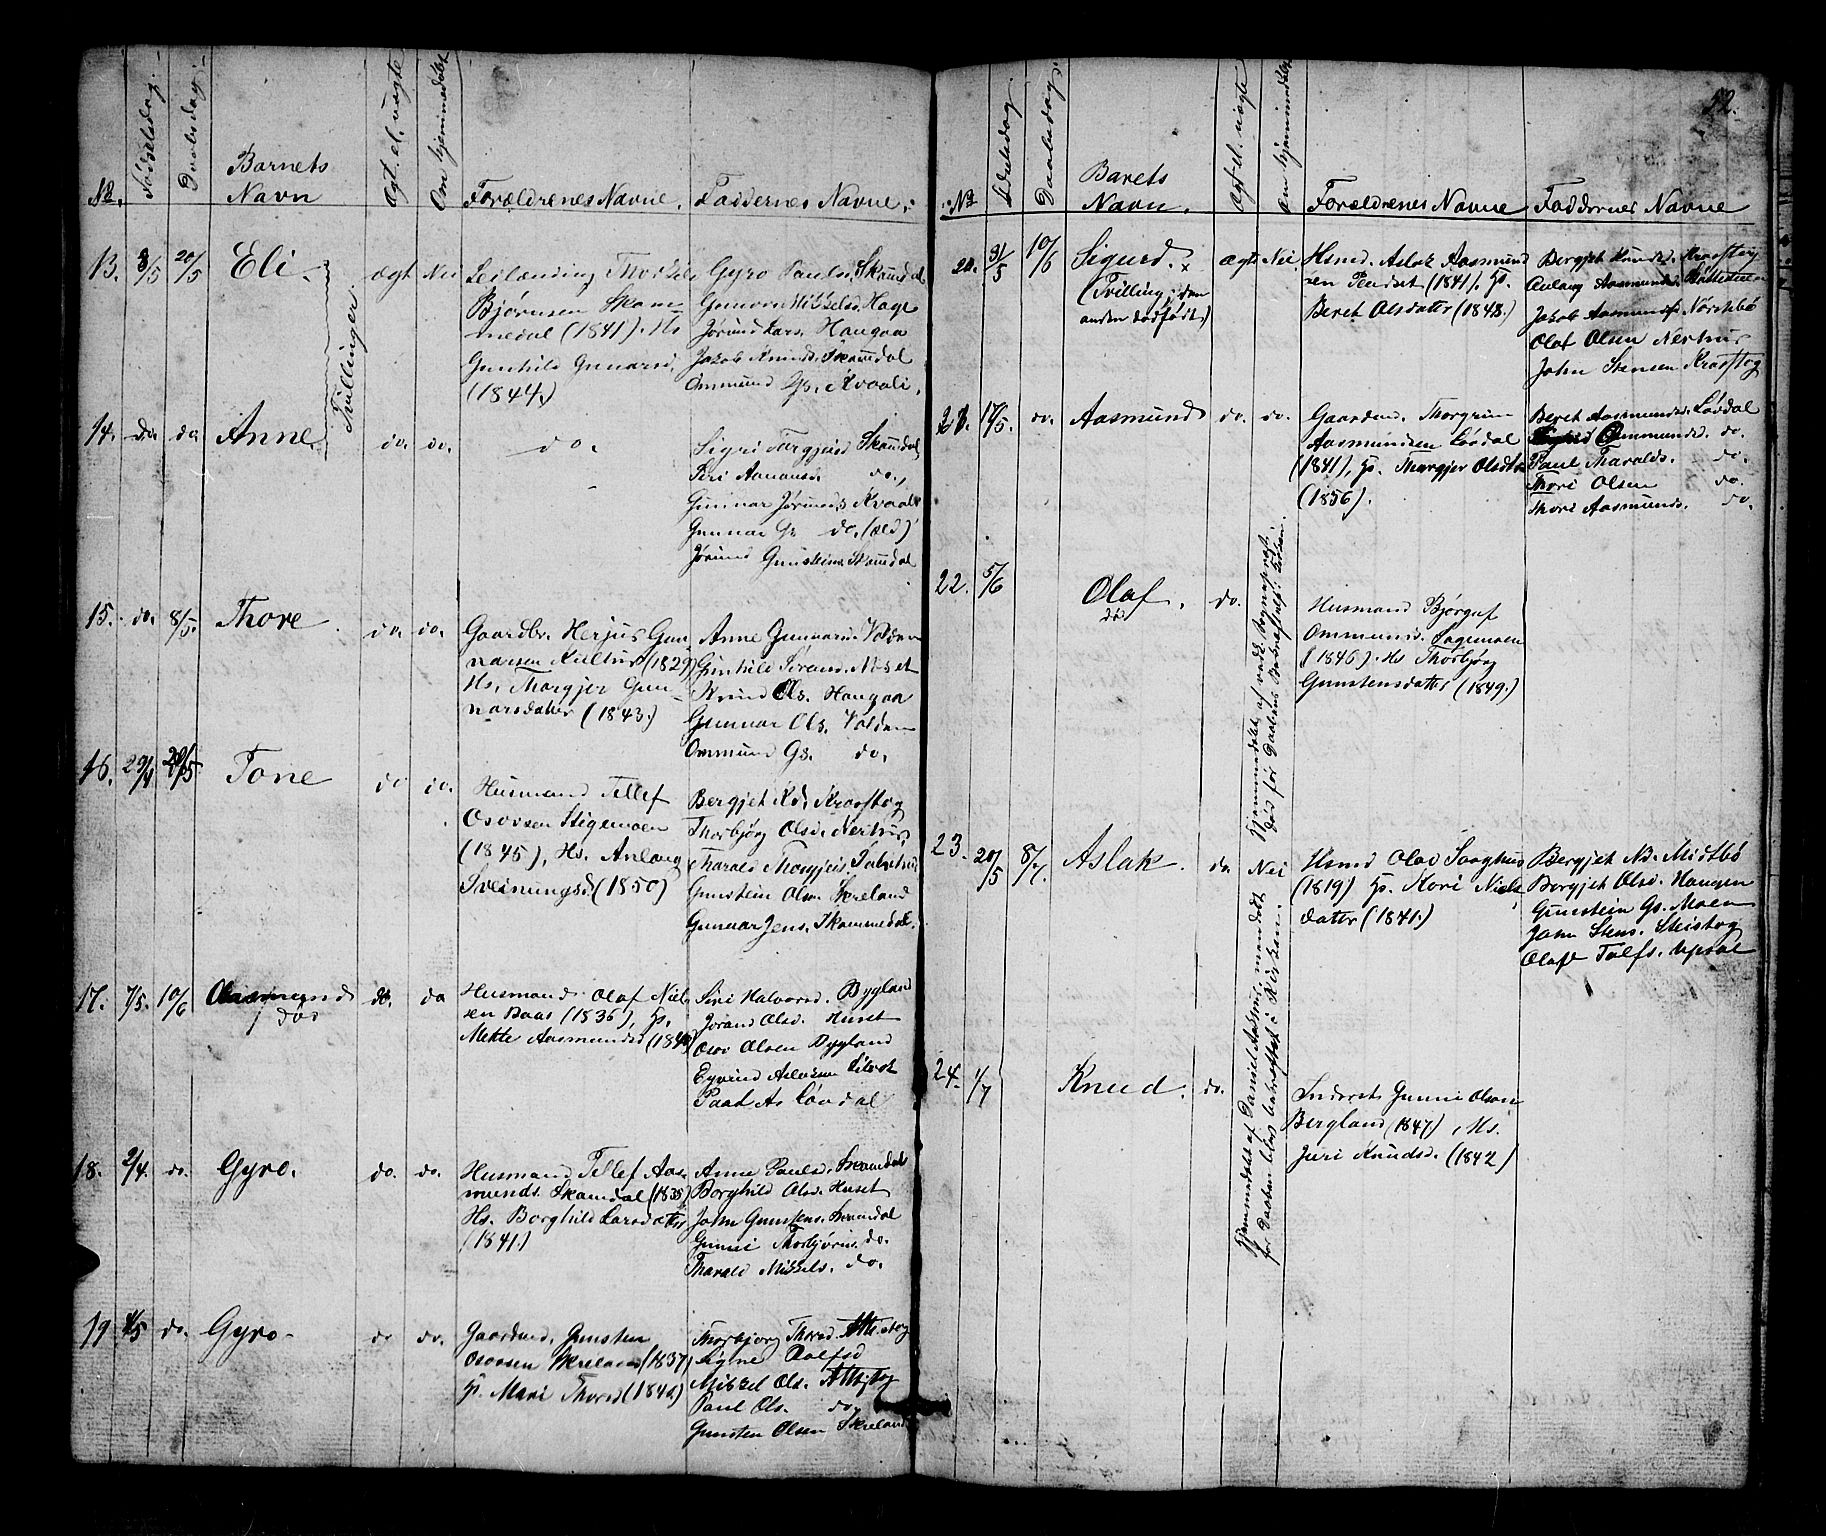 No. Fødselsdag. Daabsdag. Barnets Navn Ægt. el. uægte Om hjemmedøbt Forældrenes Navne. Faddernes Navne.
13. 8/5 20/5 Eli. ægte Nei
Tvillinger.
Leilænding
Bjørnsen Skam-
medal (1841). Hs
Gunhild Gunnarsd.
(1844.)
Gyro Paulsd. Skamdal
Gunvor Mikkelsd. Hage
Jorund Lars. Haugaa
Jakob Knuds. Skamdal
Ommund Gs. Kvaali.
14. do. do Anne do. do. do.
Sigri Torgjeisd Skamdal
Siri Aanansd. do.
Gunnar Jørunds. Kvaale
Gunnar Gs do. (æld)
Jørund Gunsteins. Skamdal
15. do. 8/5. Thore. do. do.
Gaardbr. Herjus Gun-
narsen (1829)
Hs. Torgjer Gun-
narsdatter (1843.)
Anne Gunnarsd.
Gunhild
Knud Ols. Haugaa
Gunnar Ols.
Ommund Gs. do.
16. 29/4 20/5 Tone do do.
Husmand Tellef
Osovsen Stigemoen
(1845), Hs. Anlaug
Sveinungsd (1850)
Bergjet Kd. Kraaftog
Thorbjørg Olsd. Nerhus
Tharald Thorgjeis.
Gunstein Olsen Skreland
Gunnar Jens. Skammedal.
17. 7/5. 10/6 Aasmund do. do
død
Husmand Olaf Niel-
sen Baas (1836), Hs.
Mette Aasmundsd
Siri Halvorsd. Bygland
Jorand Olsd. Huset
Osov Olsen Bygland
Eyvind Aslaksen
As Lavdal
18. 2/4. do. Gyro. do. do.
Husmand Tellef Aas-
munds. Skamdal (1835)
Hs. Borghild Larsdatter
(1841.)
Anne Paulsd. Skamdal
Borghild Olsd. Huset
John Gunstens. Skamdal
Gunni Thorbjørns. do.
Tharald Mikkels. do.
19 4/5 do. Gyro. do do.
Gaardmd. Gunsten
Osovsen Skreland (1837)
Hs. Mari Thorsd (1842)
Thorbjorg Thorsd.
Signe Oolfsd
Mikkel Ols.
Paul Ols. do.
Gunsten Olsen Skreland
52.
No. Fødselsdag Daabsdag. Barnets Navn. Ægt. el. uægte Om hjemmedøbt Forældrenes Navne Faddernes Navne
20. 31/5 10/6 Sigurd. x ægte Nei.
(Tvilling, den
anden dødfødt.)
Hsmd. Aslak Aasmund-
sen (1841), Hs.
Beret Olsdatter (1848.)
Bergjet Kraaftog
Anlaug Aasmundsd.
Jakob Aasmunds.
Olaf Olsen Nerhus
John Stensen Kraaftog
21. 17/5. do. Aasmund do. do.
Gaardmd. Thorgrim
Aasmundsen Lavdal
(1841), Hs. Thorgjer Olsdtr
(1856).
Beret Aasmundsd. Lavdal
Ommundsd. do.
Paul Tharalds. do.
Thori Olsen do.
Thori Aasmunds. do
22. 5/6 Olaf. do.
død
Hjemmedøbt af vedk. Sognepræst.
Død før Daabens Bekræftelse i Kirken.
Husmand Bjørguf
Ommunds. Lagemoen
(1846). Hs Thorbjørg
Gunstensdatter (1849.)
23. 20/5 8/7. Aslak. do. Nei
Hsmd Olav
(1819) Hs. Mari Niels-
datter (1841.)
Bergjet Nd. Mistbø
Borgjet Olsd. Haugen
Gunstein Gs. Moen
John Stens.
Olaf Upsal
24. 1/7 Knud. do.
Hjemmedøbt af Daniel Aasmundsen
før Daaben blev bekræftet i Kirken.
Inderst Gunni Olsen
Bergland (1847), Hs.
Juri Knudsd. (1842)